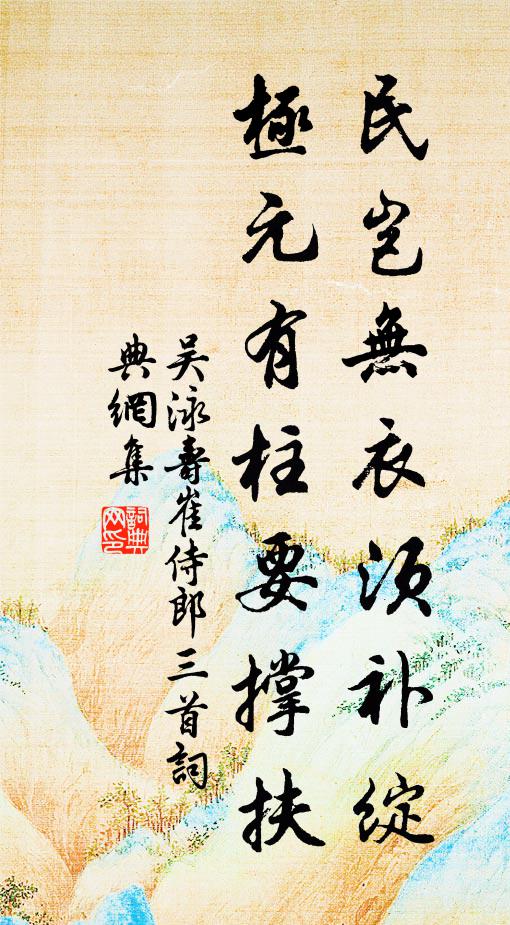 民岂無衣须补綻
極元有柱要撑扶
吴泳壽崔侍郎三首詞
典網集
詞典網印